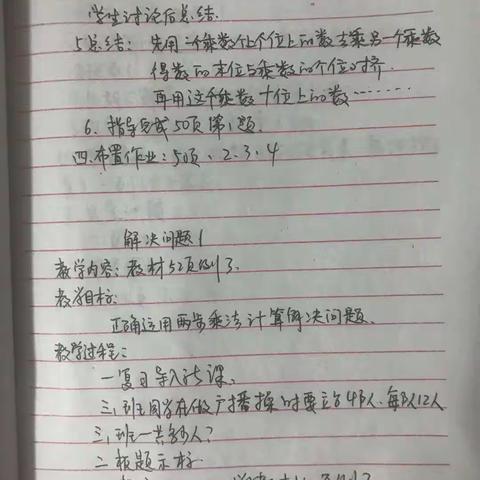 学生讨论后总结.
5总结: 先用一个乘数个位上的数去乘另一个乘数
得数的末位与乘数的个位对齐.
再用这个乘数十位上的数……
6. 指导完成50页第1题.
四.布置作业:50页、2.3、4
解决问题1
教学内容:教材52页例3.
教学目标:
正确运用两步乘法计算解决问题.
教学过程:
一复习导入新课.
三1班同学在做广播操时要立4队.每队12人
三1班一共多少人?
二板题示标.